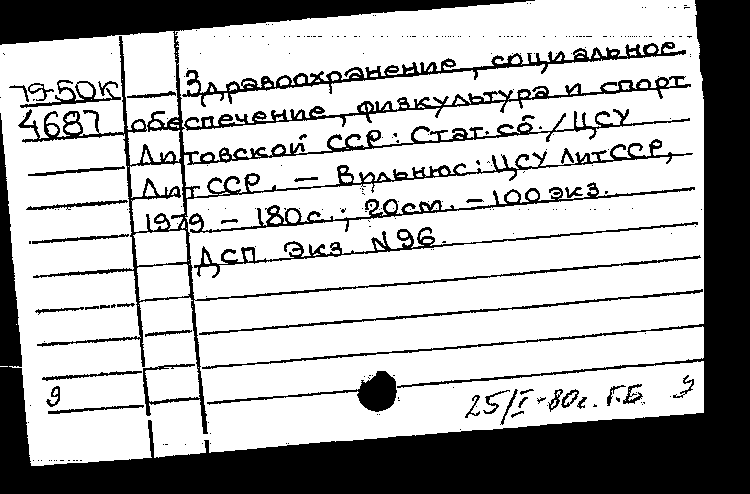 79-50К Здравоохранение, социальное
4687 обеспечение, физкультура и спорт
Литовской ССР: Стат. сб. / ЦСУ
ЛитССР. – Вильнюс: ЦСУ ЛитССР,
1979 – 180с.; 20см. – 100 экз.
ДСП Экз. N 96.
9
25/I-80г. Г.Б.